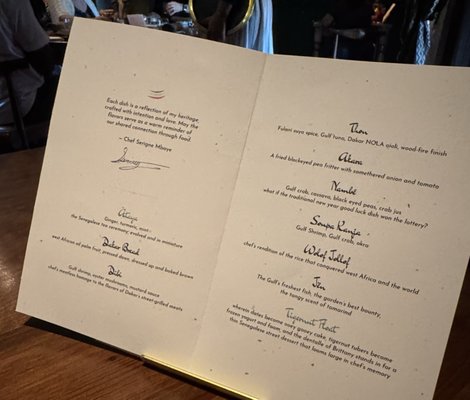 Each dish is a reflection of my heritage,
crafted with intention and love. May the
flavors serve as a warm reminder of
our shared connection through food
– Chef Serigne Mbaye
Ataya
Ginger, turmeric, mint -
the Senegalese tea ceremony evolved and in miniature
Dakar Bread
west African oil palm fruit, pressed down, dressed up and baked brown
Dibi
Gulf shrimp, oyster mushrooms, mustard sauce
chef's meatless homage to the flavors of Dakar's street grilled meats
Thon
Fulani suya spice, Gulf tuna, Dakar NOLA ajak, wood-fire finish
Akara
A fried blackeyed pea fritter with somethered onion and tomato
Nambé
Gulf crab, cassava, black eyed peas, crab jus
what if the traditional new year good luck dish won the lottery?
Soupa Kanja
Gulf Shrimp, Gulf crab, okra
Wolof Jollof
chef's rendition of the rice that conquered west Africa and the world
Jën
The Gulf's freshest fish, the garden's best bounty,
the tangy scent of tamarind
Tigernut Thiéré
wherein dates become ooey gooey cake, tigernut tubers become
frozen yogurt and foam, and the dentelle of Brittany stands in for a
this Senegalese street dessert that looms large in chef's memory